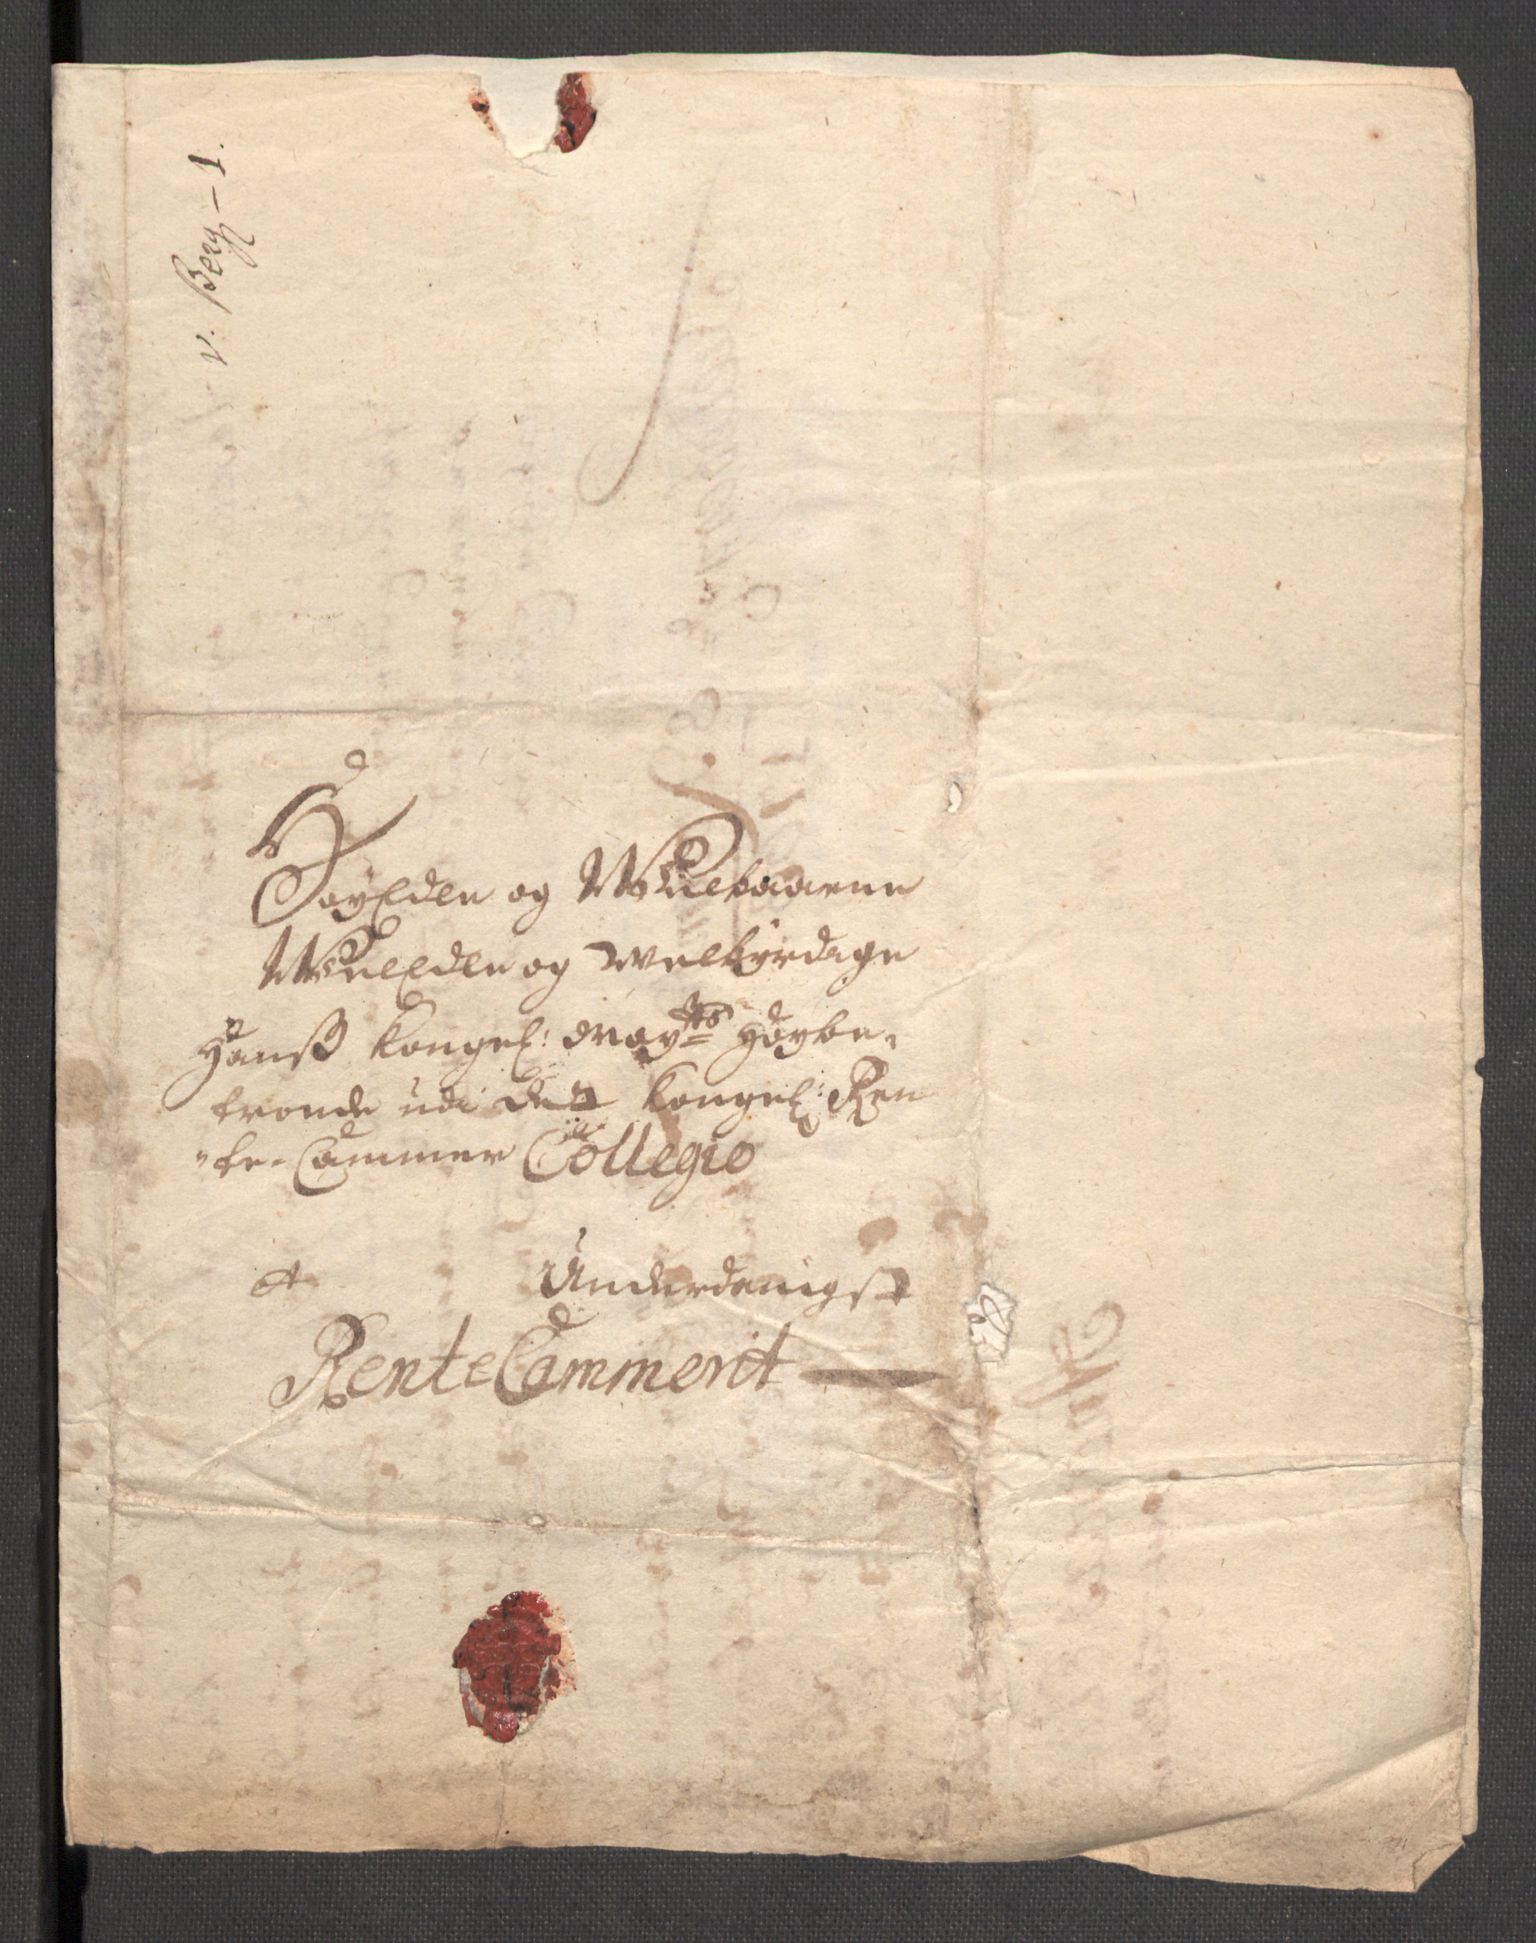 v. Berg – 1.
HøyEdle og Welbaarne
WelEdle og Welbyrdige
Hanß Kongel: May:ts Høybe-
troede udi det Kongel: Ren
-te-Cammer Collegio
A Underdanigst
RenteCammerit